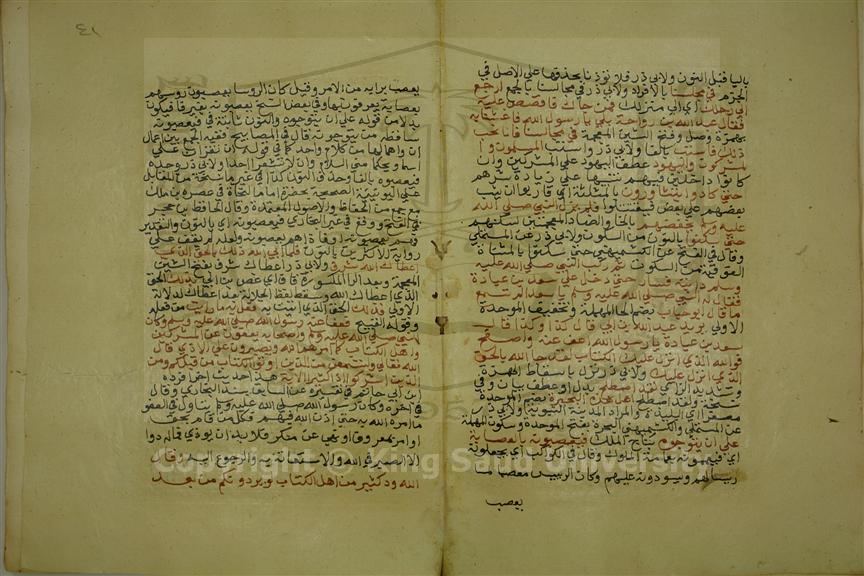 باليا قبل النون ولابي ذر فلا تؤذنا بحذفها على الاصل في
الجزم في مجلسنا بالافراد ولابي ذر في مجالسنا بالجمع ارجع
الى رحلك اي الى منزلك فمن جاك فاقصص عليه
فقال عبد الله بن رواحة بلى يا رسول الله فاغشنا به
بهمزة وصل وفتح الشين المعجمة في مجالسنا فانا نحب
ذلك فاستب بالفا ولابي ذر واستب المسلمون و
المشركون واليهود عطف اليهود على المشركين وان
كانوا داخلين فيهم تنبيها على زيادة شرهم
حتى كادوا يتثاورون بالمثلثة اي قاربوا ان يثب
بعضهم على بعض فيقتتلوا فلم يزل النبي صلى الله
عليه وسلم يخفضهم بالخا والضاد المعجمتين يسكنهم
حتى سكنوا بالنون من السكون ولابي ذر عن المستملي
وقال في الفتح عن الكشميهني حتى سكتوا بالمثناة
الفوقية من السكوت ثم ركب النبي صلى الله عليه
وسلم دابته فسار حتى دخل على سعد بن عبادة
فقال له النبي صلى الله عليه وسلم يا سعد الم تسمع
ما قال ابو حباب بضم الحا المهملة وتخفيف الموحدة
الاولى يريد عبد الله بن ابي قال كذا وكذا قال
سعد بن عبادة يا رسول الله اعف عنه واصفح
فوالله الذي انزل عليك الكتاب لقد جا الله بالحق
الذي انزل عليك ولابي ذر نزل باسقاط الهمزة
وتشديد الزاي لقد اصطلح بدل او عطف بيان وفي
نسخة ولقد اصطلح اهل هذه البحيرة بضم الموحدة
مصغرا اي البليدة والمراد المدينة النبوية ولابي ذر
عن المستملي والكشميهني البحرة بفتح الموحدة وسكون المهملة
على ان يتوجوه بتاج الملك فيعصبونه بالعصابة
اي فيعممونه بعمامة الملوك وقال في الكواكب اي يجعلونه
رييسا لهم ويسودونه عليهم وكان الرييس معصبا لما
يعصب
٤١
يعصب برايه من الامر وقيل كان الروسا يعصبون روسهم
بعصابة يعرفون بها وفي بعض النسخ يعصبونه بغير فا فيكون
بدلا من قوله على ان يتوجوه والنون ثابتة في فيعصبونه
ساقطة من يتوجوه قال في المصابيح ففيه الجمع بين اعمال
ان واهمالها من كلام واحد كما في قوله ان تقرآن على
اسما ويحكما مني السلام وان لا تشعرا احدا ولابي ذر وحده
فيعصبوه بالفا وحذف النون كذا في غير ما نسخة من المقابل
على اليونينية الصحيحة بحضرة امام النحاة في عصره بن مالك
مع جمع من الحفاظ والاصول المعتمدة وقال الحافظ بن حجر
في الفتح ووقع في غير البخاري فيعصبونه اي بالنون والتقدير
فهم يعصبونه او فاذا هم يعصبونه ولعله لم يقف على
رواية الاكثرين بالنون فلما ابى الله ذلك بالحق الذي
اعطاك الله شرق ولابي ذر اعطاك شرق بفتح الشين
المعجمة وبعد الرا المكسورة قاف اي غص بن ابي بذلك الحق
الذي اعطاك الله وسقط لفظ الجلالة بعد اعطاك لدلالة
الاولى فذلك الحق الذي اتيت به فعل به ما رايت من فعله
وقوله القبيح فعفا عنه رسول الله صلى الله عليه وسلم وكان
النبي صلى الله عليه وسلم واصحابه يعفون عن المشركين
واهل الكتاب كما امرهم الله ويصبرون على الاذى قال
الله تعالى ولتسمعن من الذين اوتوا الكتاب من قبلكم ومن
الذين اشركوا اذى كثيرا الاية هذا حديث اخر افرده
ابن ابي حاتم في تفسيره عن السابق بسند البخاري وقال
في اخره وكان رسول الله صلى الله عليه وسلم يتاول في العفو
ما امره الله به حتى اذن الله فيهم فكل من قام بحق
او امر بمعروف او نهي عن منكر فلا بد ان يوذى فما له دوا
الا الصبر في الله والاستعانة به والرجوع اليه وقال
الله ود كثير من اهل الكتاب لو يردونكم من بعد
Copyright © King Saud University